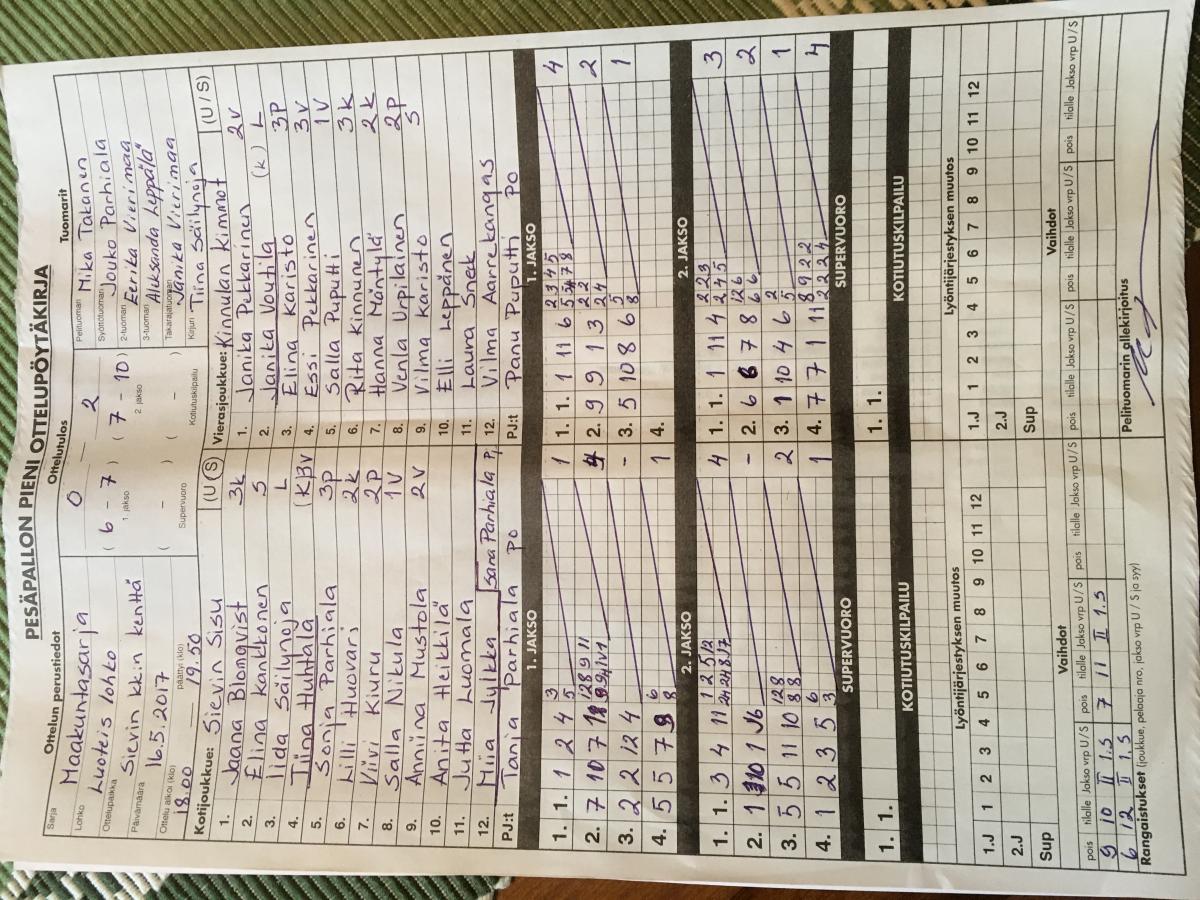 PESÄPALLON PIENI OTTELUPÖYTÄKIRJA
Ottelun perustiedot
Sarja Maakuntasarja
Lohko Luoteis lohko
Ottelupaikka Sievin kk:n kenttä
Päivämäärä 16.5.2017
Ottelu alkoi (klo) 18.00 päättyi (klo) 19.50
Ottelutulos
0 2
( 6 - 7 ) ( 7 - 10 )
1. jakso 2. jakso
( - ) ( - )
Supervuoro Kotiutuskilpailu
Tuomarit
Pelituomari Mika Takanen
Syöttötuomari Jouko Parhiala
2-tuomari Eerika Vierimaa
3-tuomari Aleksanda Leppälä
Takarajatuomari Janika Vierimaa
Kirjuri Tiina Säilynoja
Kotijoukkue: Sievin Sisu (U / S)
1. Jaana Blomqvist 3k
2. Elina Kankkonen S
3. Iida Säilynoja L
4. Tiina Huhtala (K) 3V
5. Sonja Parhiala 3p
6. Lilli Huovari 2k
7. Viivi Kiuru 2p
8. Salla Nikula 1V
9. Anniina Mustola 2V
10. Anita Heikkilä
11. Jutta Luomala
12. Miia Jylkkä Sana Parhiala
PJ:t Tanja Parhiala PO
Vierasjoukkue: Kinnulan Kimmot (U / S)
1. Janika Pekkarinen 2v
2. Janika Voutila (k) L
3. Elina Karisto 3p
4. Essi Pekkarinen 3v
5. Salla Puputti 1V
6. Rita Kinnunen 3k
7. Hanna Mäntylä 2k
8. Venla Urpilainen 2p
9. Vilma Karisto S
10. Elli Leppänen
11. Laura Snek
12. Vilma Aarrekangas
PJ:t Panu Puputti PO
1. JAKSO
1. 1. 1 2 4 3 5 1
2. 7 10 7
3. 2 2 12 4 -
4. 5 5 7 9 6 8 1
1. JAKSO
1. 1. 1 11 6 4
2. 9 9 1 3 2 2 2 4 2
3. 5 10 8 6 5 8 1
4.
2. JAKSO
1. 1. 3 4 11 4
2. 1 -
3. 5 5 11 10 2
4. 1 2 3 5 6 3 1
2. JAKSO
1. 1. 1 11 4 2 2 3 2 4 5 3
2. 6 6 7 8 12 6 6 6 2
3. 1 10 4 6 2 5 1
4. 7 7 1 11 8 9 2 2 2 2 2 4 4
SUPERVUORO
1. 1.
SUPERVUORO
1. 1.
KOTIUTUSKILPAILU
KOTIUTUSKILPAILU
Lyöntijärjestyksen muutos
1.J 1 2 3 4 5 6 7 8 9 10 11 12
2.J
Sup
Lyöntijärjestyksen muutos
1.J 1 2 3 4 5 6 7 8 9 10 11 12
2.J
Sup
Vaihdot
pois tilalle Jakso vrp U / S pois tilalle Jakso vrp U / S pois tilalle Jakso vrp U / S
9 10 II 1.5 7 11 II 1.5
6 12 II 1.5
Vaihdot
pois tilalle Jakso vrp U / S pois tilalle Jakso vrp U / S pois tilalle Jakso vrp U / S
Rangaistukset (joukkue, pelaaja nro, jakso vrp U / S ja syy)
Pelituomarin allekirjoitus